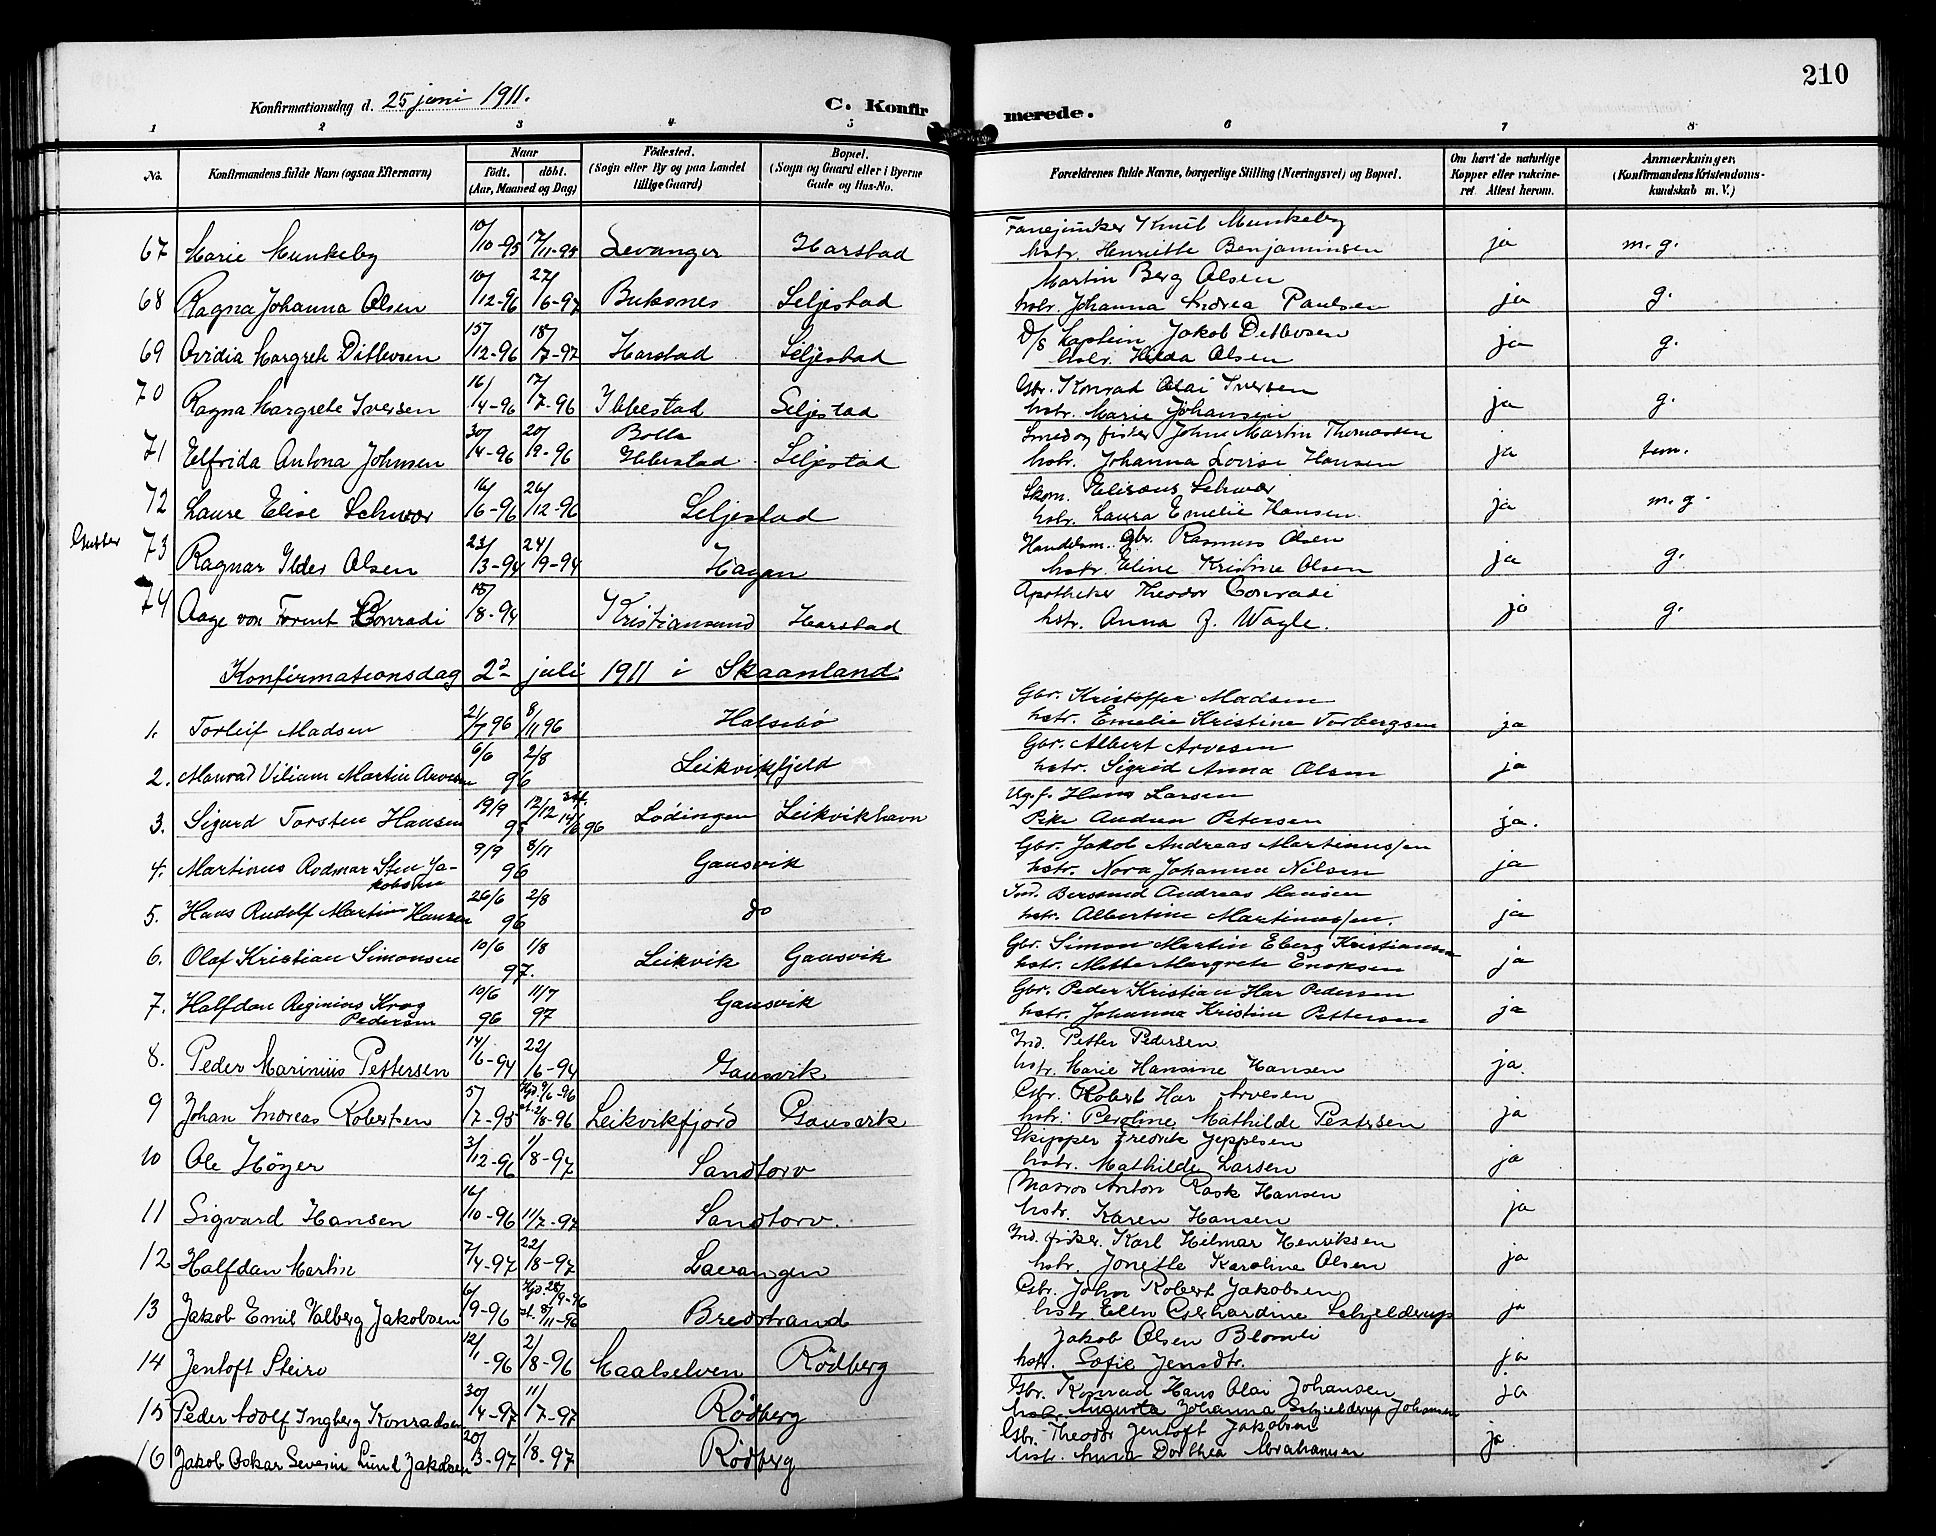 210
Konfirmationsdag d. 25 juni 1911.
C. Konfirmerede.
1 2 3 4 5 6 7 8
No. Konfirmandens fulde Navn (ogsaa Efternavn) Naar födt. döbt. (Aar, Maaned og Dag) Födested. (Sogn eller By og paa Landet tillige Gaard) Bopæl. (Sogn og Gaard eller i Byerne Gade og Hus-No. Forældrenes fulde Navne, borgerlige Stilling (Næringsvei) og Bopæl. Om havt de naturlige Kopper eller vakcineret. Attest herom. Anmærkninger. (Konfirmandens Kristendomskundskab m. V.)
67 Marie Munkeby 10/10-95 17/11-95 Levanger Harstad Fanejunker Knut Munkeby
hstr. Henriette Benjaminsen ja m. g.
68 Ragna Johanna Olsen 10/12-96 27/6-97 Buksnes Seljestad Martin Berg Olsen
hstr. Johanna Andrea Paulsen ja g.
69 Ovidia Margrete Ditlevsen 15/12-96 18/7-97 Harstad Seljestad D/S Kaptein Jakob Ditlevsen
hstr. Hilda Olsen ja g.
70 Ragna Margrete Iversen 16/4-96 17/7-96 Ibbestad Seljestad Gbr. Konrad Olai Iversen
hstr. Marie Johansen ja g.
71 Elfrida Antona Johnsen 30/4-96 20/9-96 Bolla Ibbestad Seljestad Smed og fisker Johne Martin Thomassen
hstr. Johanna Lovise Hansen ja tem.
72 Laure Elise Schwær 16/6-96 26/12-96 Seljestad Skom. Eliseus Schwær
hstr. Laura Emelie Hansen. ja m. g.
Gutter 73 Ragnar Ilder Olsen 23/3-94 24/9-94 Hagan Handelsm. Gbr. Rasmus Olsen
hstr. Eline Kristine Olsen ja g.
74 Aage von Conradi 18/8-94 Kristiansund Harstad Apotheker Theodor Conradi
hstr. Anna J. Wagle. ja g.
Konfirmationsdag 2 juli 1911 i Skaanland.
1. Torleif Madsen 21/7 96 8/11 96 Halsebö Gbr. Kristoffer Madsen
hstr. Emelie Kristine Torbergsen ja
2. Monrad Viliam Martin Arvesen 6/6 2/8 96 Leikvikfjeld Gbr. Albert Arvesen
hstr. Sigrid Anna Olsen ja
3. Sigurd Torsten Hansen 19/9 12/12 95 14/6 96 Lödingen Leikvikhavn Ug. f. Hans Larsen
Pike Andrea Petersen ja.
4. Martinus Rodmar Sten Jakobsen 9/9 8/11 96 Gausvik Gbr. Jakob Andreas Martinussen
hstr. Nora Johanna Nilsen ja
5. Hans Rudolf Martin Hansen 26/6 2/8 96 do Ind. Bersvend Andreas Hansen
hstr. Albertine Martinussen. ja
6. Olaf Kristian Simonsen 10/6 1/8 97. Leikvik Gausvik Gbr. Simon Martin Eberg Kristiansen
hstr. Mette Margrete Enoksen ja
7. Halfdan Reginius Krog Pedersen 10/6 96 11/7 97 Gausvik Gbr. Peder Kristian Har Pedersen
hstr. Johanna Kristine Pettersen ja
8. Peder Marinius Pettersen 14/6-94 22/6-94 Gausvik Ind. Petter Pedersen
hstr. Marie Hansine Hansen ja.
9 Johan Andreas Robertsen 5/7-95 Hjd. 9/6-96 st. 2/8-96 Leikvikfjord Gausvik Gbr. Robert Har Arvesen
hstr. Peroline Mathilde Pettersen ja
10 Ole Höyer 3/12-96 1/8-97 Sandtorv Skipper Fredrik Jeppesen
hstr. Mathilde Larsen ja
11 Sigvard Hansen 16/10-96 11/7-97 Sandtorv. Matros Anton Rask Hansen
hstr. Karen Hansen ja
12 Halfdan Martin 7/4-97 22/8-97 Lavangen Ind. fisker. Karl Hilmar Henriksen
hstr. Jonette Karoline Olsen ja
13 Jakob Emil Valberg Jakobsen 6/9-96 Hjd. 28/9-96 st. 8/11-96 Bredstrand Gbr. John Robert Jakobsen
hstr. Ellen Gerhardine Schjelderup ja
14 Jentoft Steiro 12/1-96 2/8-96 Maalselven Rödberg Jakob Olsen Blomli
hstr. Sofie Jensdtr. ja
15 Peder Adolf Ingberg Konradsen 30/4-97 11/7-97 Rödberg Gbr. Konrad Hans Olai Johansen
hstr. Augusta Johanna Schjelderup Johansen ja
16 Jakob Oskar Severin Lund Jakobsen 20/3-97 1/8-97 Rödberg Gbr. Theodor Jentoft Jakobsen
hstr. Anna Dorthea Abrahamsen ja.